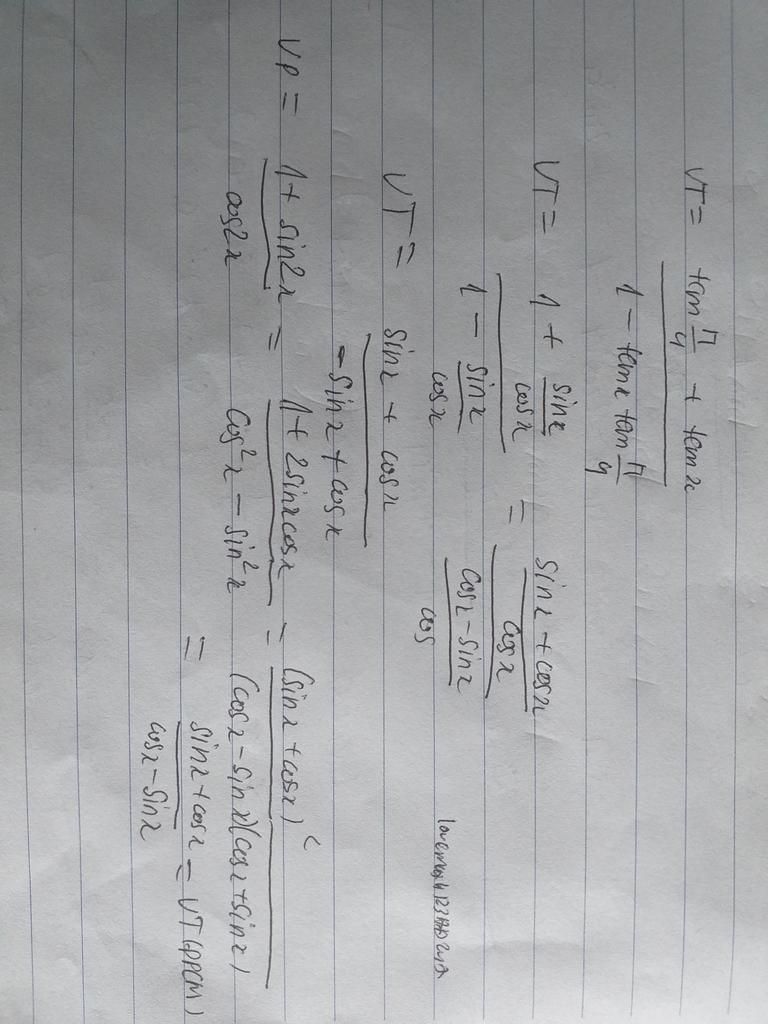 VT = (tan π/4 + tan x) / (1 - tan x tan π/4)
VT = (1 + sin x/cos x) / (1 - sin x/cos x) = ((sin x + cos x)/cos x) / ((cos x - sin x)/cos)
VT = (sin x + cos x) / (-sin x + cos x)
VP = (1 + sin2x) / cos2x = (1 + 2sin x cos x) / (cos²x - sin²x) = (sin x + cos x)² / ((cos x - sin x)(cos x + sin x))
= (sin x + cos x) / (cos x - sin x) = VT (ĐPCM)